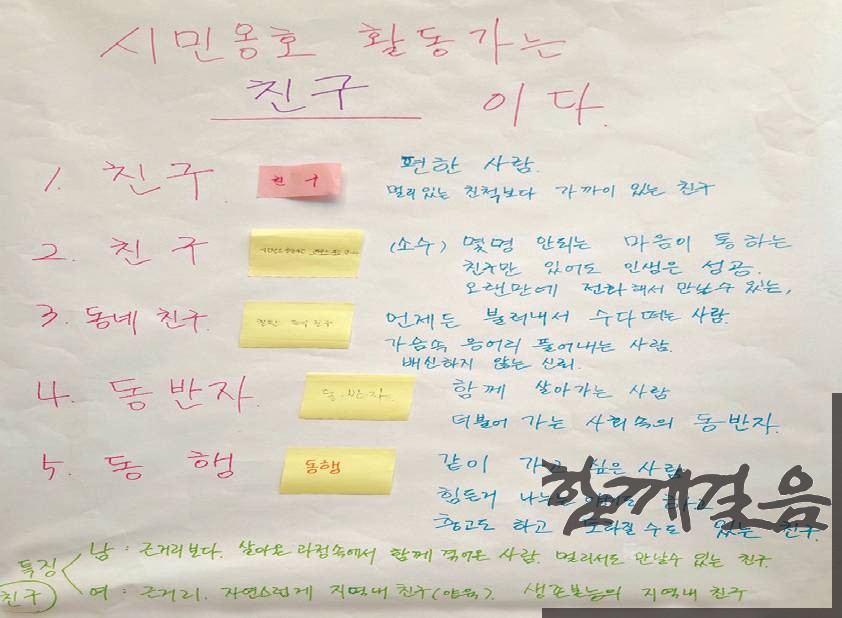 시민옹호 활동가는
친구 이다.
1. 친구 친구 편한 사람.
멀리있는 친척보다 가까이 있는 친구
2. 친구 (소수) 몇명 안되는 마음이 통하는
친구만 있어도 인생은 성공.
오랜만에 전화해서 만날수 있는,
3. 동네 친구. 친구 언제든 불러내서 수다떠는 사람.
가슴속 응어리 풀어내는 사람.
배신하지 않는 신뢰.
4. 동반자. 동반자. 함께 살아가는 사람
더불어 가는 사회속의 동반자.
5. 동행 동행 같이 가고 싶은 사람
힘든거 나누는
충고도 하고 수도 있는 친구.
함께걸음
특징 남: 근거리보다. 살아온 과정속에서 함께 겪어온 사람. 멀리서도 만날수 있는 친구.
친구 여: 근거리. 자연스럽게 지역내 친구(양육). 생존본능의 지역내 친구